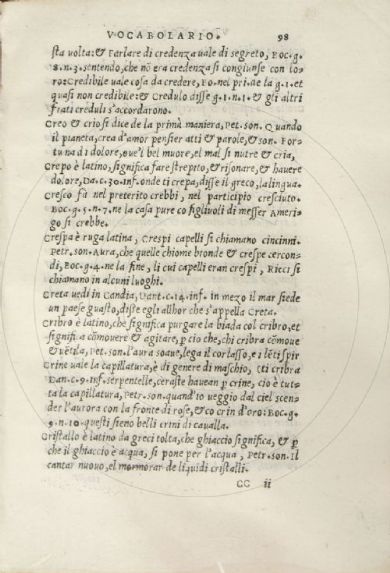 VOCABOLARIO. 98
sta volta: & Parlare di credenza uale di segreto, Boc. g.
8. n. 3. sentendo, che nō era credenza si congiunse con lo-
ro: Credibile uale cosa da credere, Bo. nel pri. de la g. 1. et
quasi non credibile: & Credulo disse g. 1. n. 1. & gli altri
frati creduli s'accordarono.
Creo & crio si dice de la prima maniera, Pet. son. Quando
il pianeta, crea d'amor pensier atti & parole, & son. For-
tuna di dolore, oue'l bel muore, el mal si nutre & cria,
Crepo è latino, significa fare strepito, & risonare, & hauere
dolore, Da. c. 30. Inf. onde ti crepa, disse il greco, la lingua.
Cresco fà nel preterito crebbi, nel participio cresciuto.
Boc. g. 5. n. 7. ne la casa pure co figliuoli di messer Ameri-
go si crebbe.
Crespa è ruga latina, Crespi capelli si chiamano cincinni.
Petr. son. Aura, che quelle chiome bronde & crespe cercon-
di, Boc. g. 4. ne la fine, li cui capelli eran crespi, Ricci si
chiamano in alcuni luoghi.
Creta uedi in Candia, Dant. c. 14. inf. in mezo il mar siede
un paese guasto, disse egli allhor che s'appella Creta.
Cribro è latino, che significa purgare la biada col cribro, et
significa cōmouere & agitare, p cio che, chi cribra cōmoue
& uētila, Pet. son. l'aura soaue, lega il cor lasso, e i lēti spir
Crine uale la capillatura, è di genere di maschio, ti cribra
Dan. c. 9. Inf. serpentelle, ceraste hauean p crine, cio è tut-
ta la capillatura, Petr. son. quand'io ueggio dal ciel scen-
der l'aurora con la fronte di rose, & co crin d'oro: Boc. g.
9. n. 10. questi sieno belli crini di caualla.
Cristallo è latino da greci tolta, che ghiaccio significa, & p
che il ghiaccio è acqua, si pone per l'acqua, Petr. son. Il
cantar nuouo, el mormorar de liquidi cristalli.
CC ii